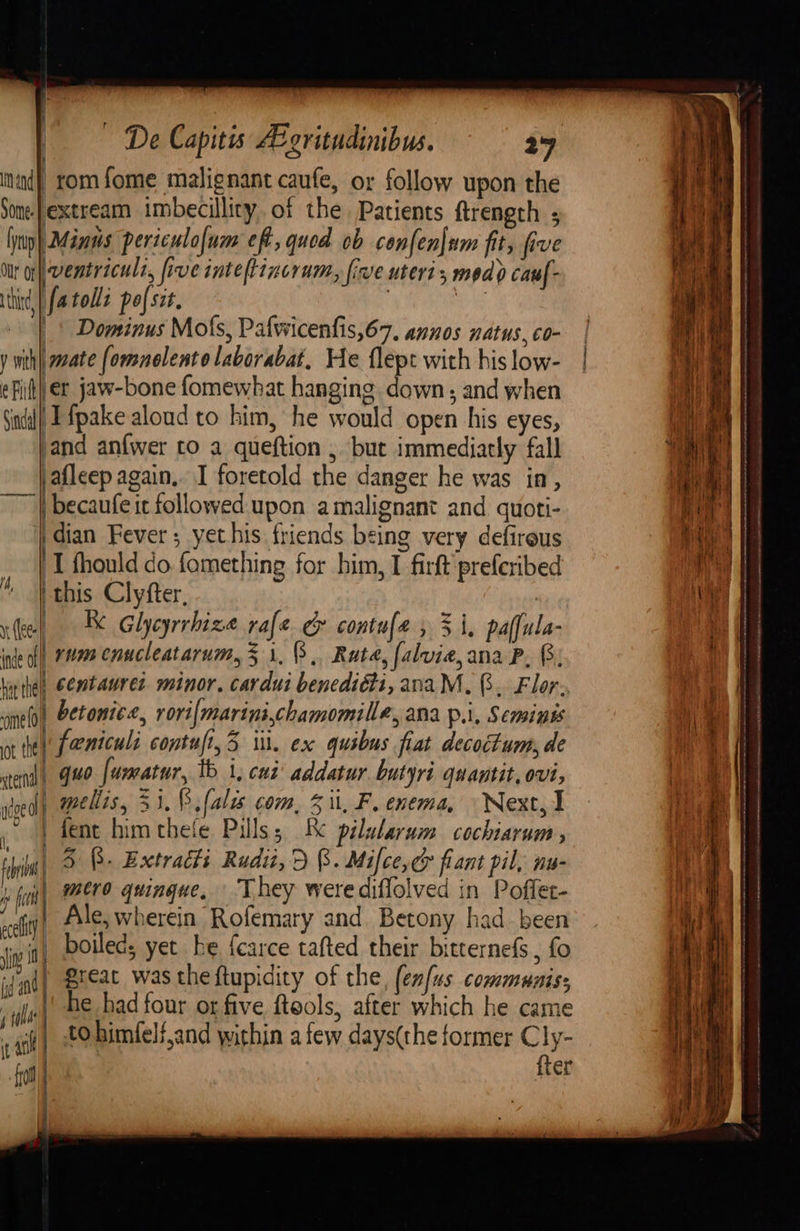 De Capitis Ægritudinibus. 27
rom ſome malignant cauſe, or follow upon the
extream imbecillity of the Patients ſtrength ;
Minùs periculoſum eſt, quod ob conſenſum fit, ſive
ventriculi, ſive inteſtinorum, ſive uteri; modò cauſ-
ſa tolli poſsit.
Dominus Moſs, Paſwicenſis, 67. annos natus, co-
mate ſomnolento laborabat. He ſlept with his low-
er jaw-bone ſomewhat hanging down; and when
I ſpake aloud to him, he would open his eyes,
and anſwer to a queſtion, but immediatly fall
aſleep again. I foretold the danger he was in,
becauſe it followed upon a malignant and quoti-
dian Fever; yet his friends being very deſirous
I ſhould do ſomething for him, I firſt preſcribed
this Clyſter.
℞ Glycyrrhizæ raſæ & contuſæ, ℥ i, paſſula-
rum enucleatarum, ℥ i, ß, Rutæ, ſalviæ, ana P. ß,
centaurei minor. cardui benedicti, ana M. ß, Flor.
betonicæ, roriſmarini, chamomillæ, ana p.i, Seminis
fœniculi contuſi, ʒ iii. ex quibus fiat decoctum, de
quo ſumatur, ℔ i, cui addatur butyri quantit. ovi,
mellis, ℥ i, ß, ſalis com, ʒ ii, F. enema. Next, I
ſent him theſe Pills; ℞ pilularum cochiarum,
ʒ ß. Extracti Rudii, ℈ ß. Miſce, & fiant pil, nu-
mero quinque. They were diſſolved in Poſſet-
Ale, wherein Roſemary and Betony had been
boiled; yet he ſcarce taſted their bitterneſs, ſo
great was the ſtupidity of the ſenſus communis;
he had four or five ſtools, after which he came
to himſelf, and within a few days (the former Cly-
ſter